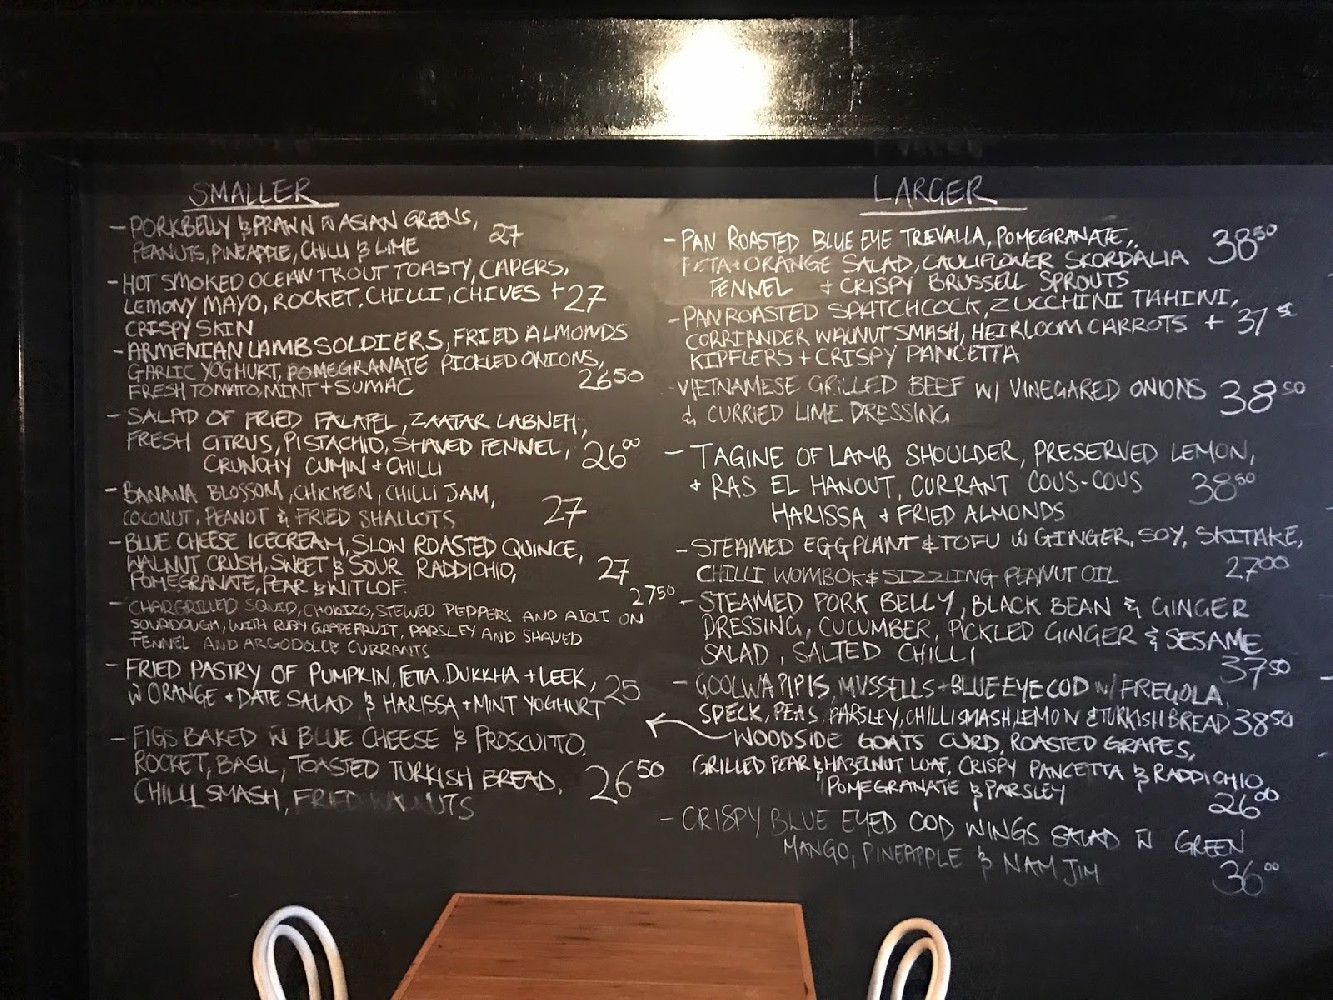 SMALLER
- PORKBELLY & PRAWN W ASIAN GREENS,
PEANUTS, PINEAPPLE, CHILLI & LIME 27
- HOT SMOKED OCEAN TROUT TOASTY, CAPERS,
LEMONY MAYO, ROCKET, CHILLI, CHIVES + 27
CRISPY SKIN
- ARMENIAN LAMB SOLDIERS, FRIED ALMONDS
GARLIC YOGHURT, POMEGRANATE PICKLED ONIONS,
FRESH TOMATO, MINT + SUMAC 26 50
- SALAD OF FRIED FALAFEL, ZAATAR LABNEH,
FRESH CITRUS, PISTACHIO, SHAVED FENNEL, 26 00
CRUNCHY CUMIN + CHILLI
- BANANA BLOSSOM, CHICKEN, CHILLI JAM,
COCONUT, PEANUT & FRIED SHALLOTS 27
- BLUE CHEESE ICECREAM, SLOW ROASTED QUINCE,
WALNUT CRUSH, SWEET & SOUR RADDICHIO, 27
POMEGRANATE, PEAR & WITLOF.
27 50
- CHARGRILLED SQUID, CHORIZO, STEWED PEPPERS AND AIOLI ON
SOURDOUGH, WITH RUBY GRAPEFRUIT, PARSLEY AND SHAVED
FENNEL AND AGRODOLCE CURRANTS
- FRIED PASTRY OF PUMPKIN, FETA, DUKKHA + LEEK, 25
W ORANGE + DATE SALAD & HARISSA + MINT YOGHURT
- FIGS BAKED W BLUE CHEESE & PROSCUITTO,
ROCKET, BASIL, TOASTED TURKISH BREAD, 26 50
CHILLI SMASH, FRIED WALNUTS
LARGER
- PAN ROASTED BLUE EYE TREVALLA, POMEGRANATE, 38 50
FETA + ORANGE SALAD, CAULIFLOWER SKORDALIA
FENNEL + CRISPY BRUSSELL SPROUTS
- PAN ROASTED SPATCHCOCK, ZUCCHINI TAHINI,
CORRIANDER WALNUT SMASH, HEIRLOOM CARROTS + 37 50
KIPFLERS + CRISPY PANCETTA
- VIETNAMESE GRILLED BEEF W/ VINEGARED ONIONS 38 50
& CURRIED LIME DRESSING
- TAGINE OF LAMB SHOULDER, PRESERVED LEMON,
+ RAS EL HANOUT, CURRANT COUS-COUS 38 50
HARISSA + FRIED ALMONDS
- STEAMED EGGPLANT & TOFU W GINGER, SOY, SKITAKE,
CHILLI WOMBOK & SIZZLING PEANUT OIL 27 00
- STEAMED PORK BELLY, BLACK BEAN & GINGER
DRESSING, CUCUMBER, PICKLED GINGER & SESAME
SALAD, SALTED CHILLI 37 50
- GOOLWA PIPIS, MUSSELLS + BLUE EYE COD W/ FREGOLA,
SPECK, PEAS, PARSLEY, CHILLI SMASH, LEMON & TURKISH BREAD 38 50
WOODSIDE GOATS CURD, ROASTED GRAPES,
GRILLED PEAR & HAZELNUT LOAF, CRISPY PANCETTA & RADDICHIO,
POMEGRANATE & PARSLEY 26 00
- CRISPY BLUE EYED COD WINGS SALAD W GREEN
MANGO, PINEAPPLE & NAM JIM 36 00